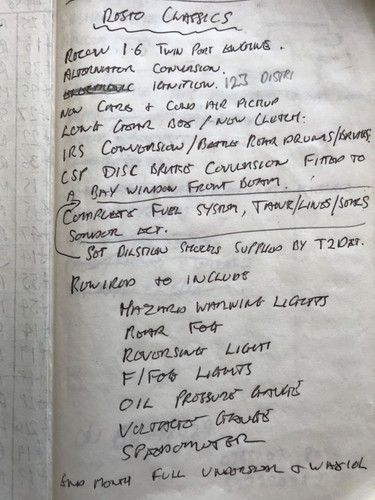 ROSTO CLASSICS
RECON 1.6 TWIN PORT ENGINE.
ALTERNATOR CONVERSION.
IGNITION. 123 DISTRI
NEW CARBS + COLD AIR PICKUP
LONG GEAR BOX / NEW CLUTCH.
IRS CONVERSION / BEETLE REAR DRUMS / BRAKES.
CSP DISC BRAKE CONVERSION FITTED TO
A BAY WINDOW FRONT BEAM.
COMPLETE FUEL SYSTEM, TANK/LINES/SEALS
SENDER ECT.
SET SHOCKS SUPPLIED BY T2D
REWIRED TO INCLUDE
HAZARD WARNING LIGHTS
REAR FOG
REVERSING LIGHT
F/FOG LIGHTS
OIL PRESSURE GAUGE
VOLTAGE GAUGE
SPEEDOMETER
END MONTH FULL UNDERSEAL + WAXOL